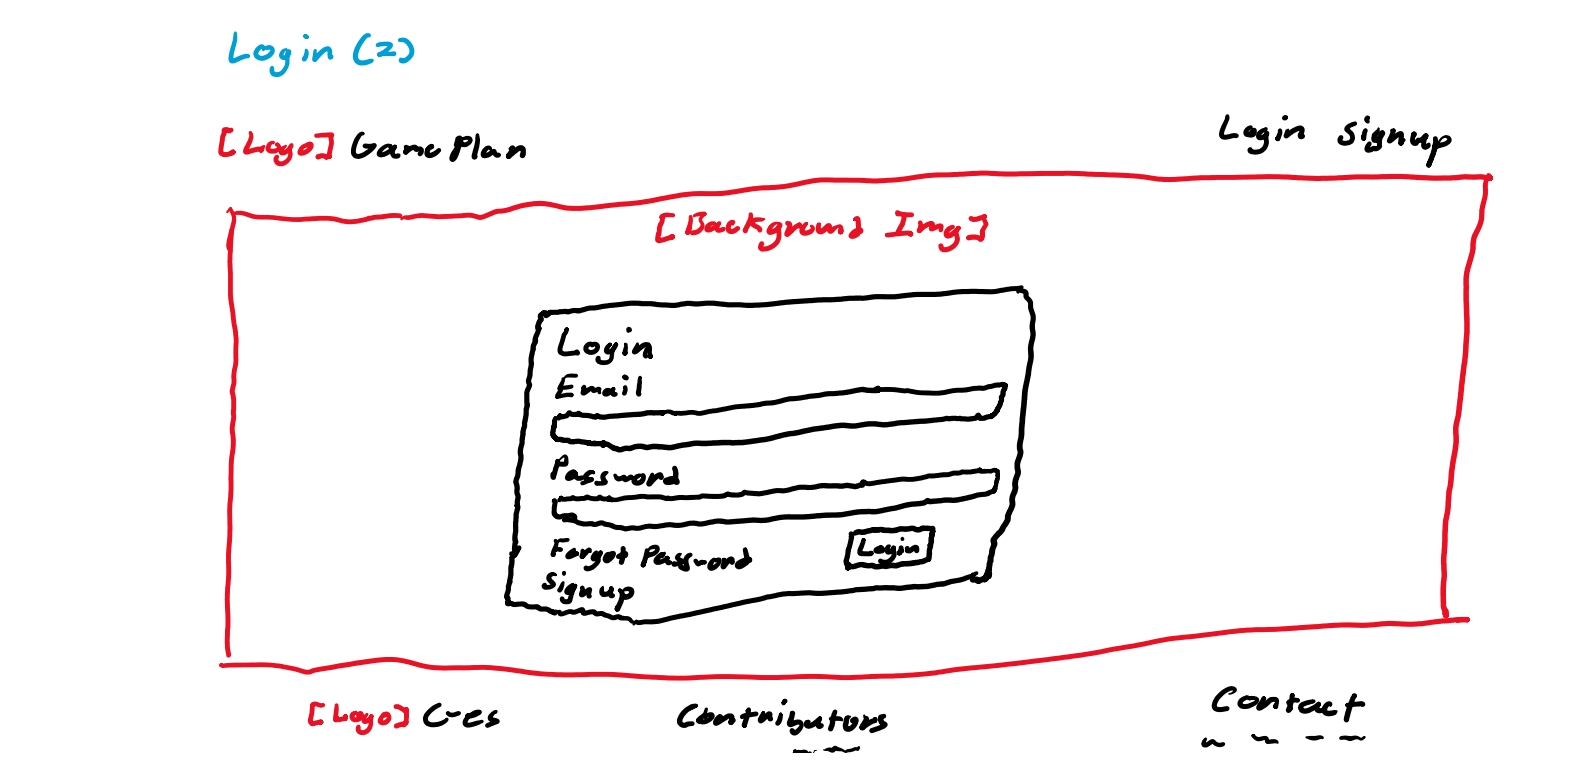 Login (2)
[Logo] GamePlan Login Signup
[Background Img]
Login
Email
Password
Forgot Password Login
Signup
[Logo] Contributors Contact